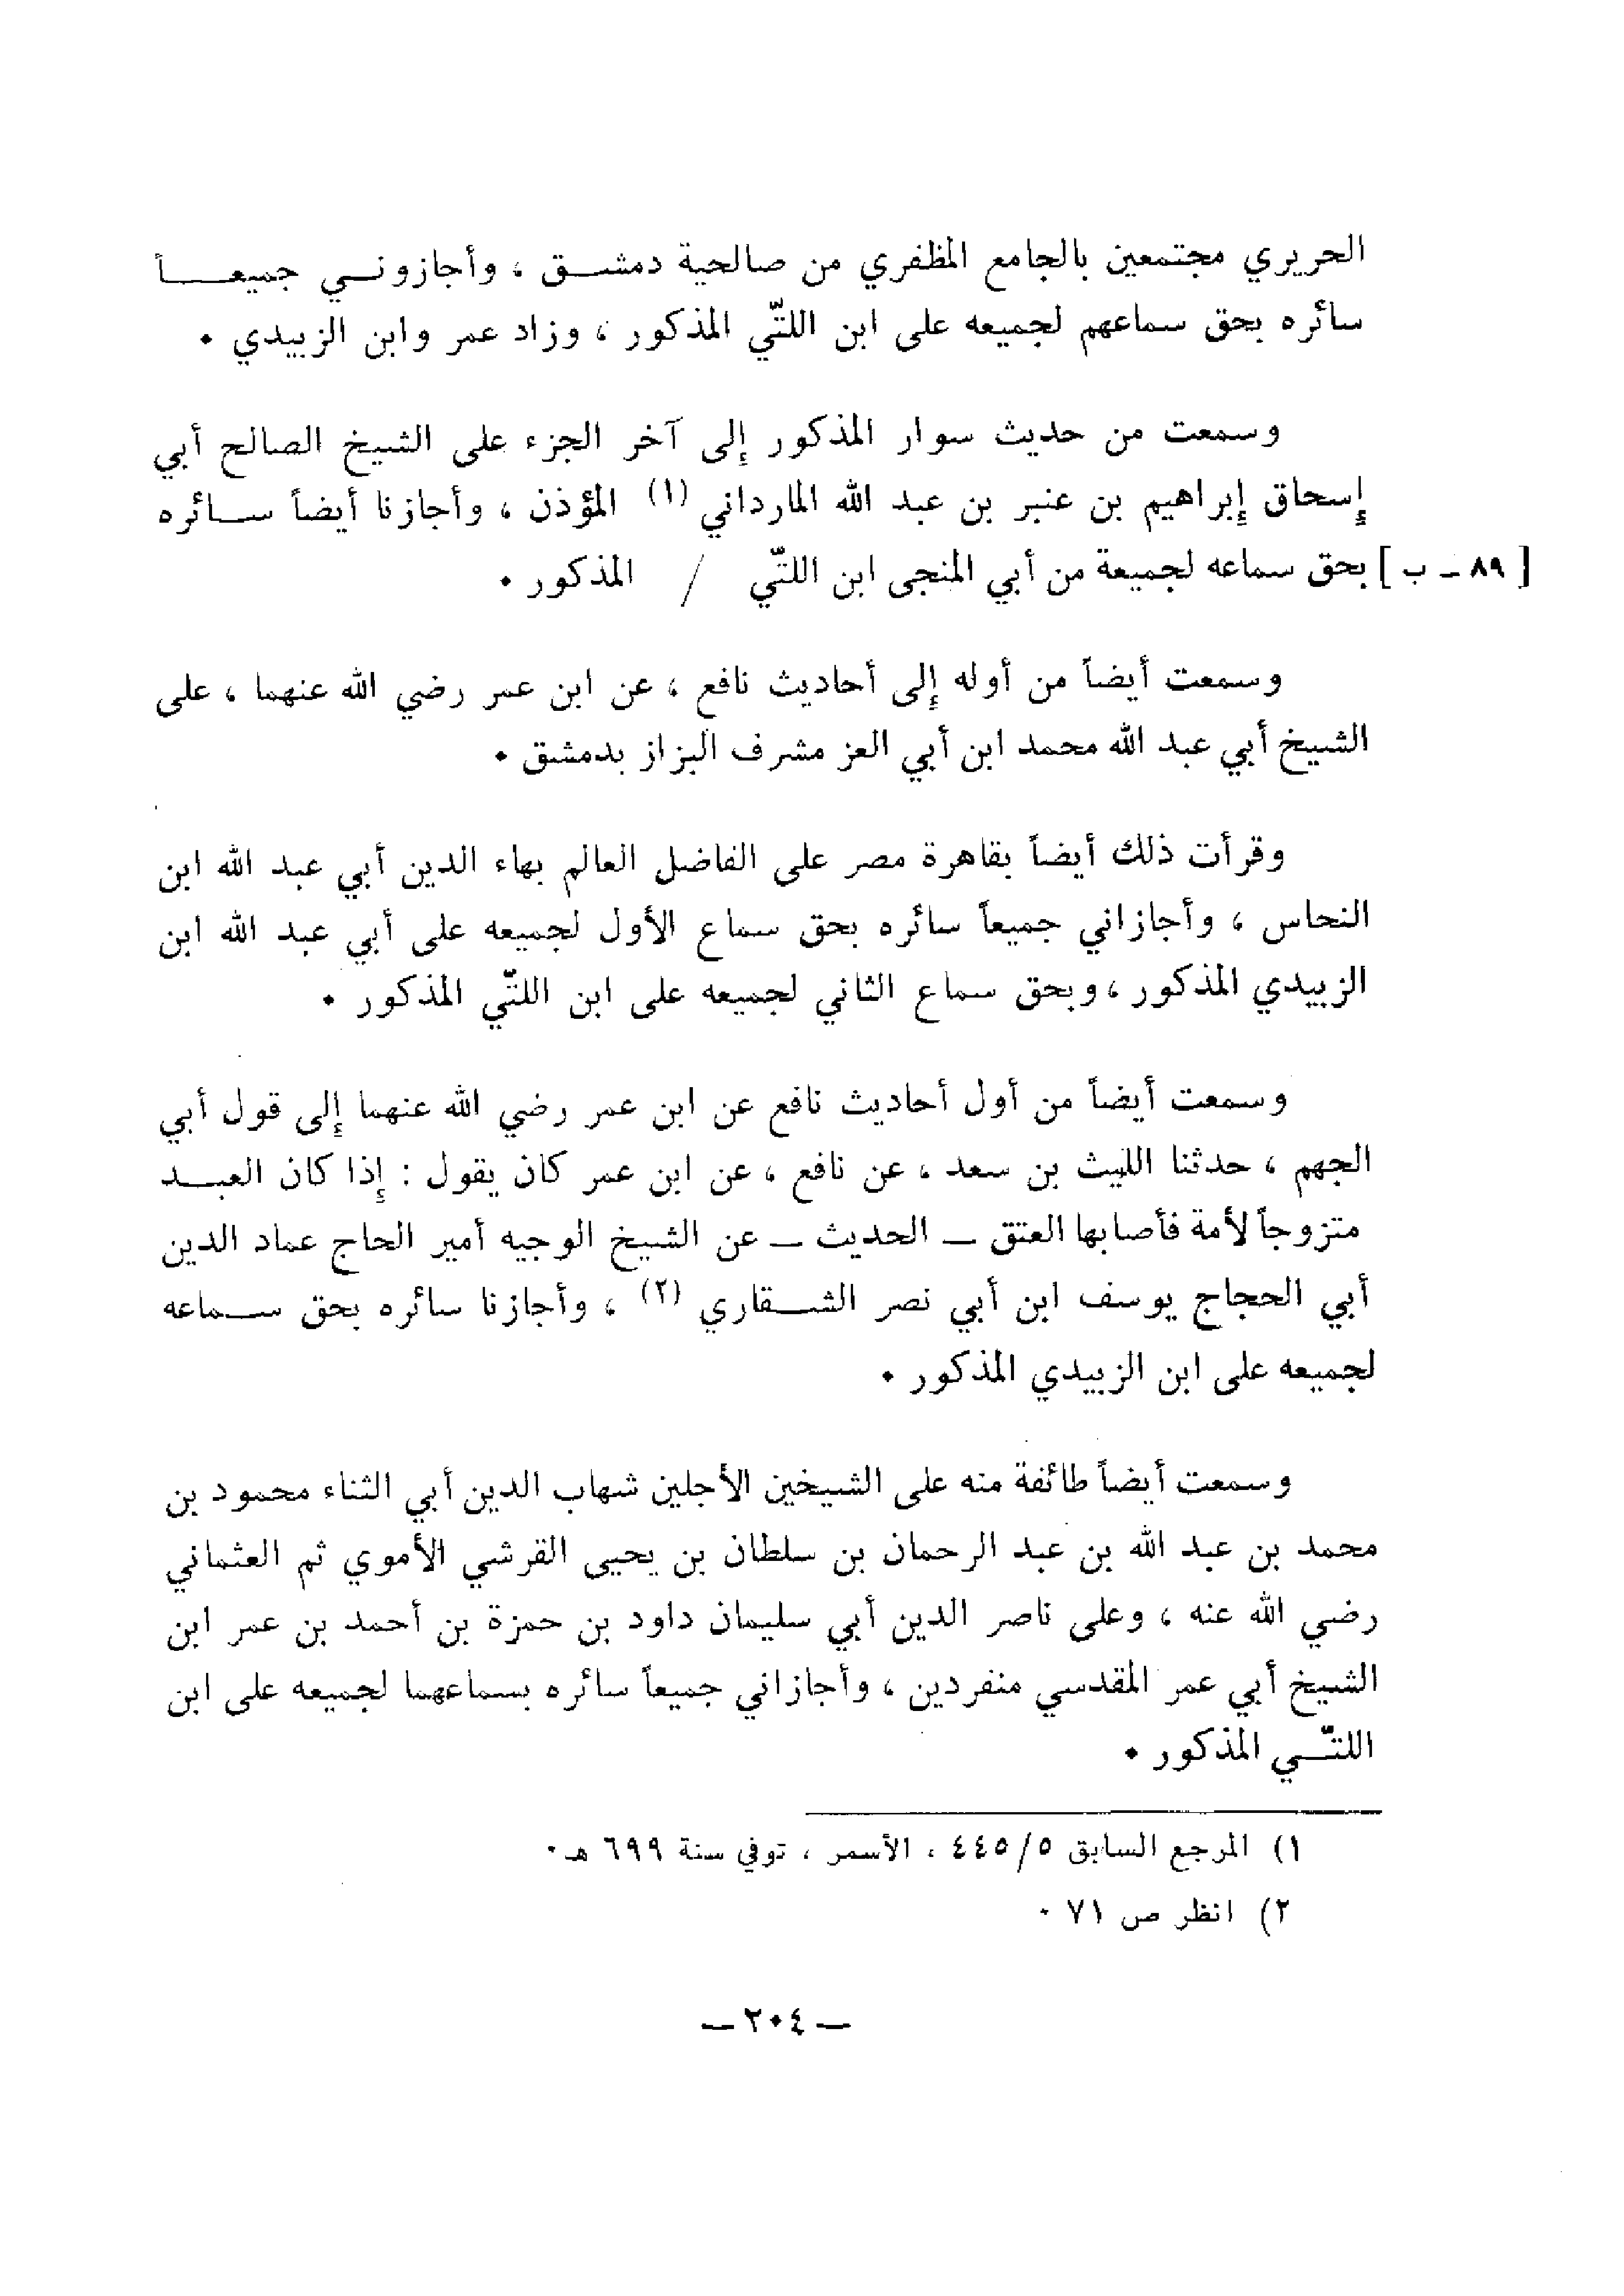 الحريري مجتمعين بالجامع المظفري من صالحية دمشق ، وأجازوني جميعاً
سائره بحق سماعهم لجميعه على ابن اللتّي المذكور ، وزاد عمر وابن الزبيدي .
وسمعت من حديث سوار المذكور إلى آخر الجزء على الشيخ الصالح أبي
إسحاق إبراهيم بن عنبر بن عبد الله المارداني (١) المؤذن ، وأجازنا أيضاً سائره
[ ٨٩ - ب ] بحق سماعه لجميعة من أبي المنجى ابن اللتّي / المذكور .
وسمعت أيضاً من أوله إلى أحاديث نافع ، عن ابن عمر رضي الله عنهما ، على
الشيخ أبي عبد الله محمد ابن أبي العز مشرف البزاز بدمشق .
وقرأت ذلك أيضاً بقاهرة مصر على الفاضل العالم بهاء الدين أبي عبد الله ابن
النحاس ، وأجازاني جميعاً سائره بحق سماع الأول لجميعه على أبي عبد الله ابن
الزبيدي المذكور ، وبحق سماع الثاني لجميعه على ابن اللتّي المذكور .
وسمعت أيضاً من أول أحاديث نافع عن ابن عمر رضي الله عنهما إلى قول أبي
الجهم ، حدثنا الليث بن سعد ، عن نافع ، عن ابن عمر كان يقول : إذا كان العبد
متزوجاً لأمة فأصابها العتق — الحديث — عن الشيخ الوجيه أمير الحاج عماد الدين
أبي الحجاج يوسف ابن أبي نصر الشقاري (٢) ، وأجازنا سائره بحق سماعه
لجميعه على ابن الزبيدي المذكور .
وسمعت أيضاً طائفة منه على الشيخين الأجلين شهاب الدين أبي الثناء محمود بن
محمد بن عبد الله بن عبد الرحمان بن سلطان بن يحيى القرشي الأموي ثم العثماني
رضي الله عنه ، وعلى ناصر الدين أبي سليمان داود بن حمزة بن أحمد بن عمر ابن
الشيخ أبي عمر المقدسي منفردين ، وأجازاني جميعاً سائره بسماعهما لجميعه على ابن
اللتّي المذكور .
١) المرجع السابق ٤٤٥/٥ ، الأسمر ، توفي سنة ٦٩٩ هـ .
٢) انظر ص ٧١ .
— ٢٠٤ —